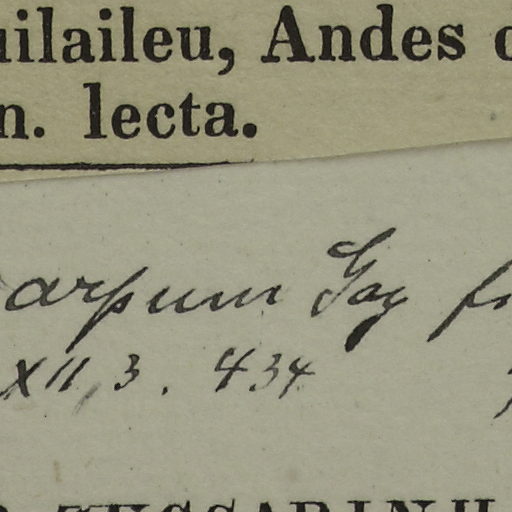 uilaileu, Andes
n. lecta.
arpum Gay
XII, 3. 434